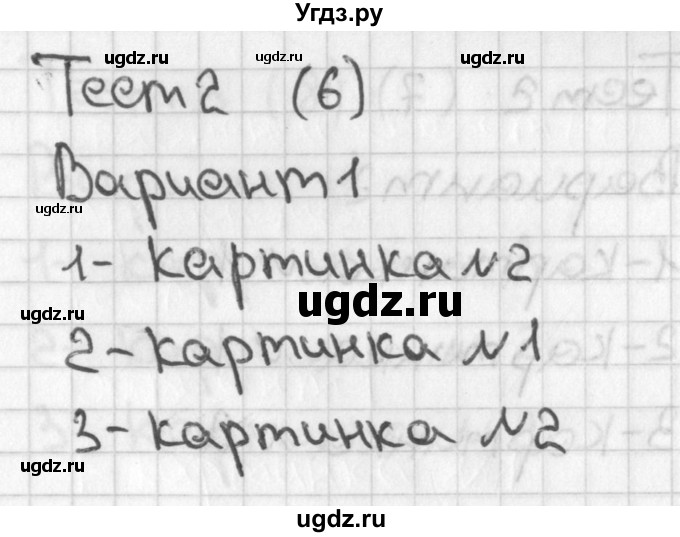 Угдз.ру
ugdz.ru ugdz.ru ugdz.ru
Тест 2 (6)
Вариант 1
ugdz.ru
1- картинка №2
ugdz.ru
ugdz.ru
2- картинка №1
3- картинка №2
ugdz.ru
ugdz.ru